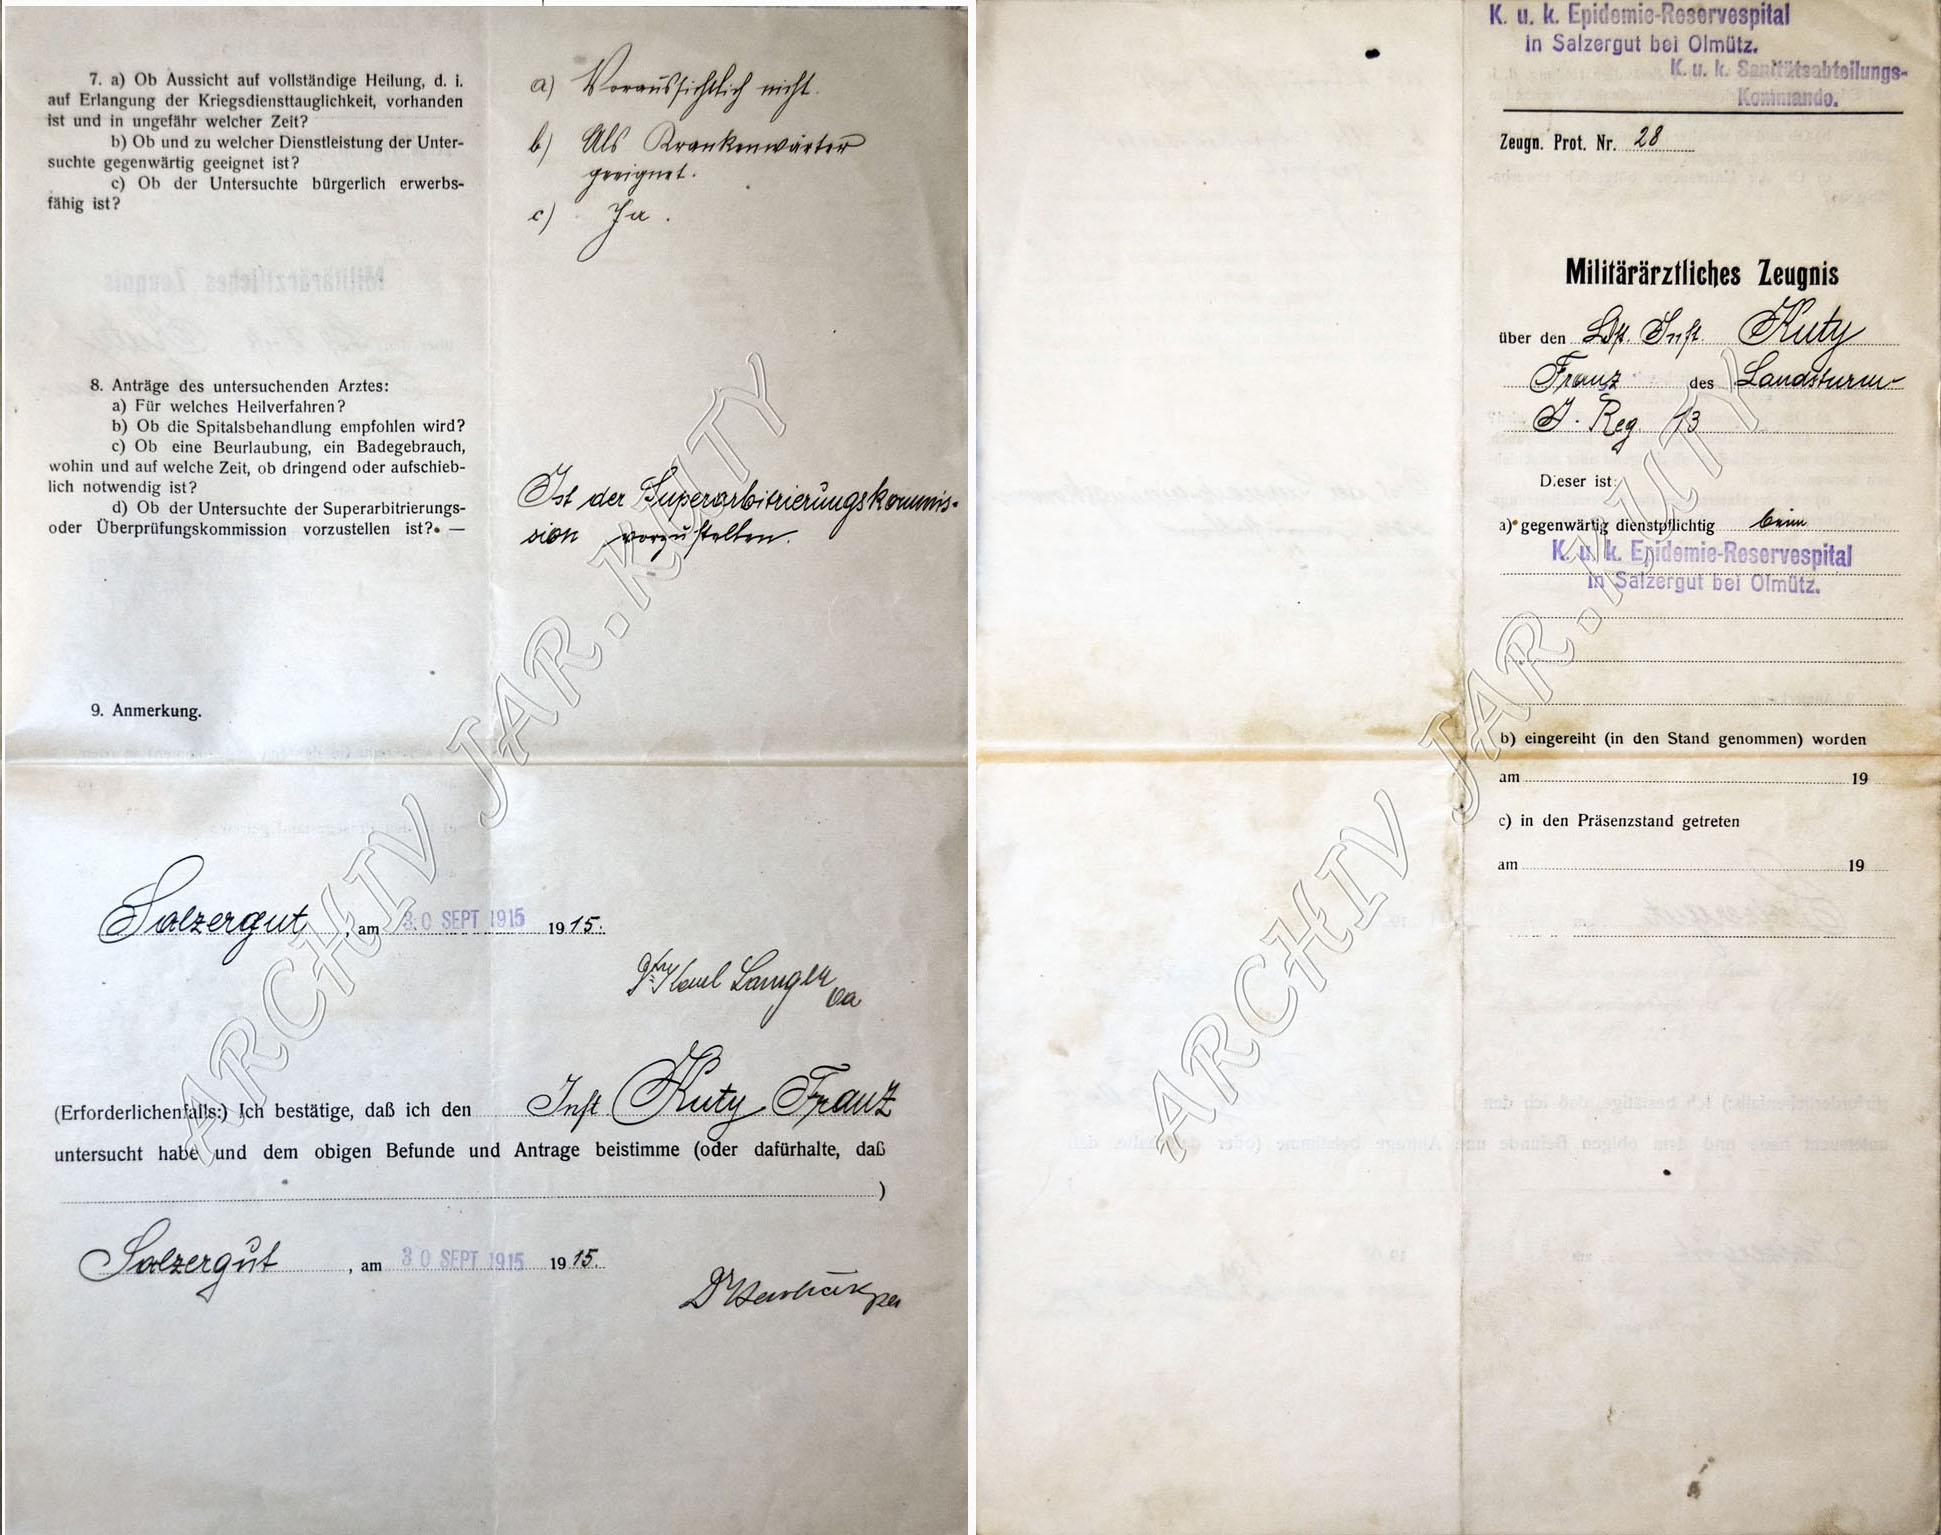 7. a) Ob Aussicht auf vollständige Heilung, d. i.
auf Erlangung der Kriegsdiensttauglichkeit, vorhanden
ist und in ungefähr welcher Zeit?
b) Ob und zu welcher Dienstleistung der Unter-
suchte gegenwärtig geeignet ist?
c) Ob der Untersuchte bürgerlich erwerbs-
fähig ist?
a) Voraussichtlich nicht.
b) Als Krankenwärter
geeignet.
c) Ja.
8. Anträge des untersuchenden Arztes:
a) Für welches Heilverfahren?
b) Ob die Spitalsbehandlung empfohlen wird?
c) Ob eine Beurlaubung, ein Badegebrauch,
wohin und auf welche Zeit, ob dringend oder aufschieb-
lich notwendig ist?
d) Ob der Untersuchte der Superarbitrierungs-
oder Überprüfungskommission vorzustellen ist? —
Ist der Superarbitrierungskommis-
sion vorzustellen.
9. Anmerkung.
Salzergut, am 30 SEPT 1915 1915.
Dr Karl Langer
(Erforderlichenfalls:) Ich bestätige, daß ich den Inft Kuty Franz
untersucht habe und dem obigen Befunde und Antrage beistimme (oder dafürhalte, daß
)
Salzergut, am 30 SEPT 1915 1915.
Dr
K. u. k. Epidemie-Reservespital
in Salzergut bei Olmütz.
K. u. k. Sanitätsabteilungs-
Kommando.
Zeugn. Prot. Nr. 28
Militärärztliches Zeugnis
über den Ldst. Inft. Kuty
Franz des Landsturm-
I. Reg. 13
Dieser ist:
a) gegenwärtig dienstpflichtig beim
K. u. k. Epidemie-Reservespital
in Salzergut bei Olmütz.
b) eingereiht (in den Stand genommen) worden
am 19
c) in den Präsenzstand getreten
am 19
ARCHIV JAR. KUTY
ARCHIV JAR. KUTY